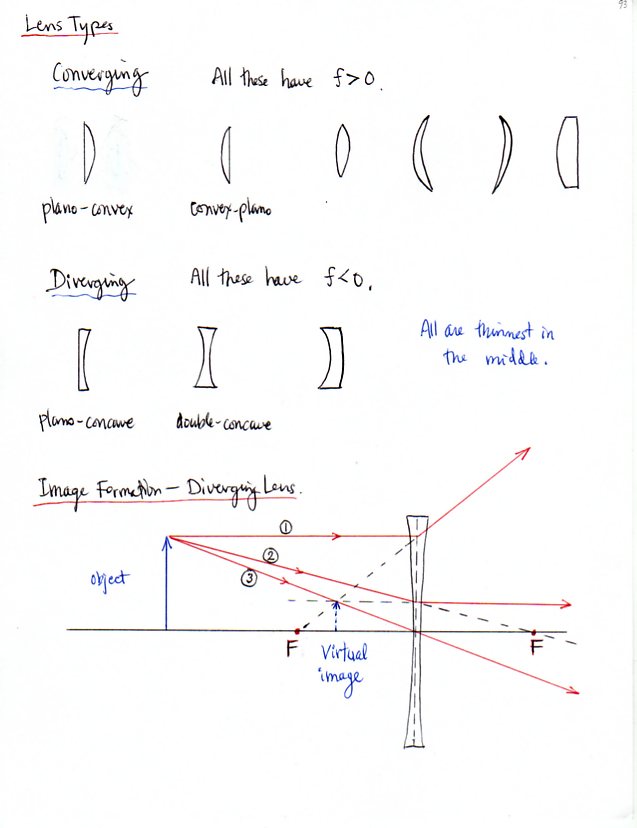 93
Lens Types
Converging All these have f>0.
plano-convex convex-plano
Diverging All these have f<0.
All are thinnest in
the middle.
plano-concave double-concave
Image Formation — Diverging Lens.
①
②
③
object
F Virtual F
image